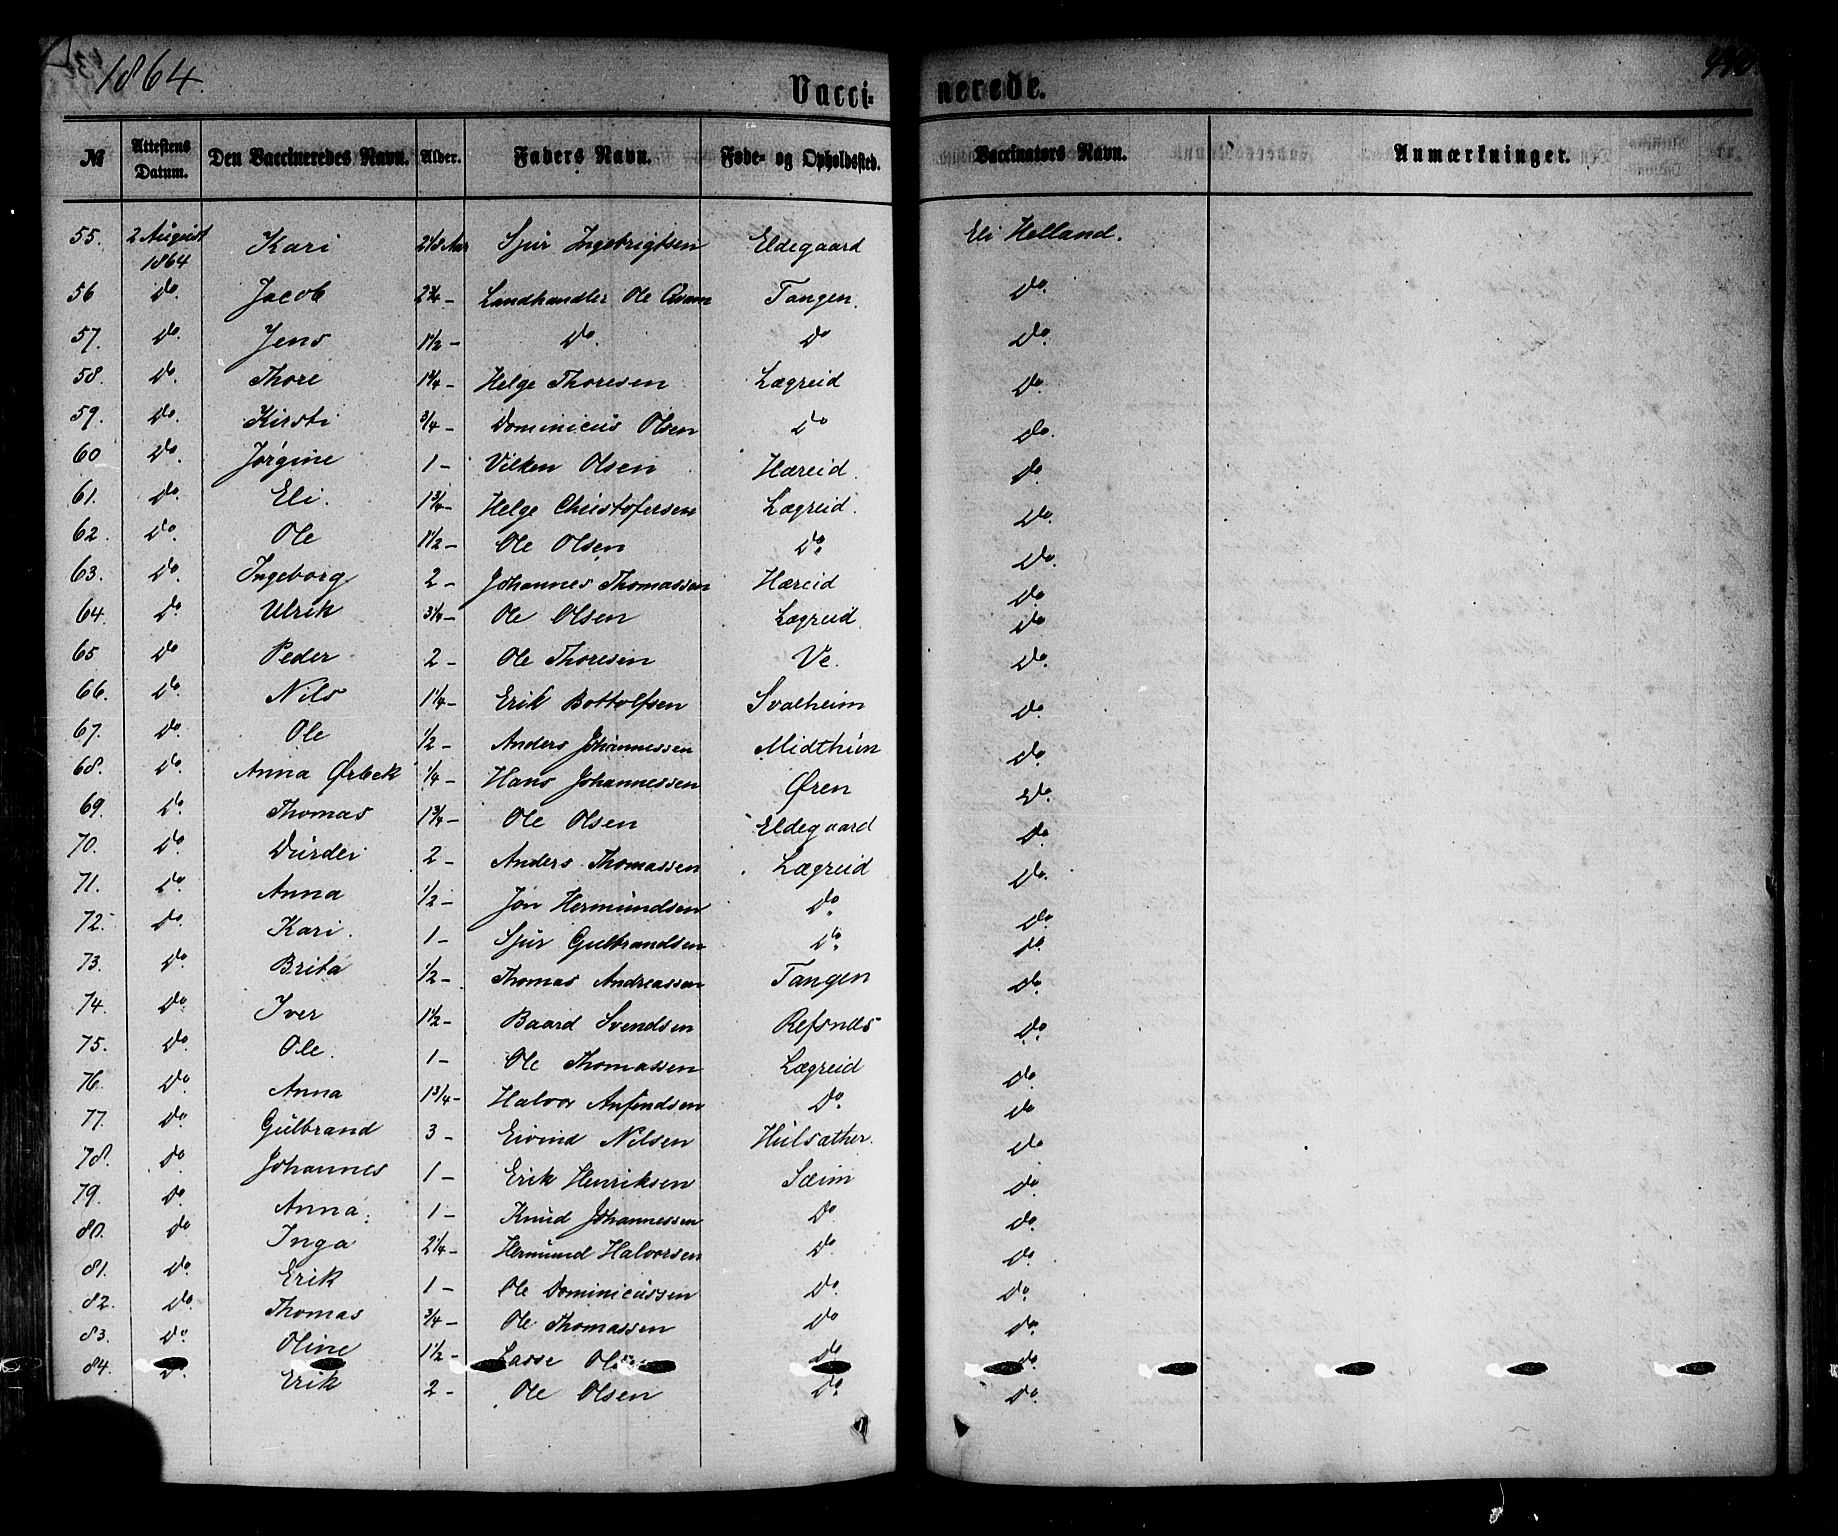 1864.
Vacci- nerede.
№ Attestens Datum. Den Vaccineredes Navn. Alder. Faders Navn. Føde- og Opholdssted. Vaccinators Navn. Anmærkninger.
55. 2 August 1864 Kari Sjur Ingebrigtsen Eldegaard Eli Helland.
56 Do. Jacob 2¾ - Landhandler Ole Tangen. Do.
57. Do Jens 1½ - Do. Do Do.
58. Do. Thore 1¼ - Helge Thoresen Lægreid Do.
59. Do. Kirsti ¾ - Dominicus Olsen Do Do.
60 Do. Jørgine 1 - Vilken Olsen Hæreid. Do.
61. Do. Eli. 1¾ - Helge Christofersen Lægreid. Do.
62. Do. Ole 1½ - Ole Olsen Do. Do.
63. Do. Ingeborg 2 - Johannes Thomassen Hæreid Do.
64. Do Ulrik 3¼ - Ole Olsen Lægreid. Do.
65 Do Peder 2 - Ole Thoresen Ve. Do.
66. Do. Nils 1¼ - Erik Bottolfsen Svalheim Do.
67. Do. Ole ½ - Anders Johannessen Midthun Do.
68. Do. Anna Ørbek ¼ - Hans Johannessen Øren Do.
69. Do. Thomas 1¾ - Ole Olsen Eldegaard Do.
70. Do. Durdei 2 - Anders Thomassen Lægreid Do.
71. Do. Anna ½ - Jon Hermundsen Do. Do.
72. Do. Kari. 1 - Sjur Gulbrandsen Do. Do.
73. Do. Brita ½ - Thomas Andreassen Tangen Do.
74. Do. Iver 1½ - Baard Svendsen Refsnes Do.
75. Do. Ole. 1 - Ole Thomassen Lægreid Do.
76. Do. Anna 1¾ - Halvor Anfindsen Do. Do.
77. Do. Gulbrand 3 - Eivind Nilsen Hulsæther. Do.
78. Do. Johannes 1 - Erik Henriksen Sæim Do.
79. Do. Anna. 1 - Knud Johannessen Do. Do.
80. Do Inga 2¼ - Hermund Halvorsen Do. Do.
81. Do. Erik 1 - Ole Dominicussen Do. Do.
82. Do. Thomas ¾ - Ole Thomassen Do Do.
83. Do. Oline 1½ - Lasse Olsen Do Do.
84. Do. Erik 2 - Ole Olsen Do. Do.